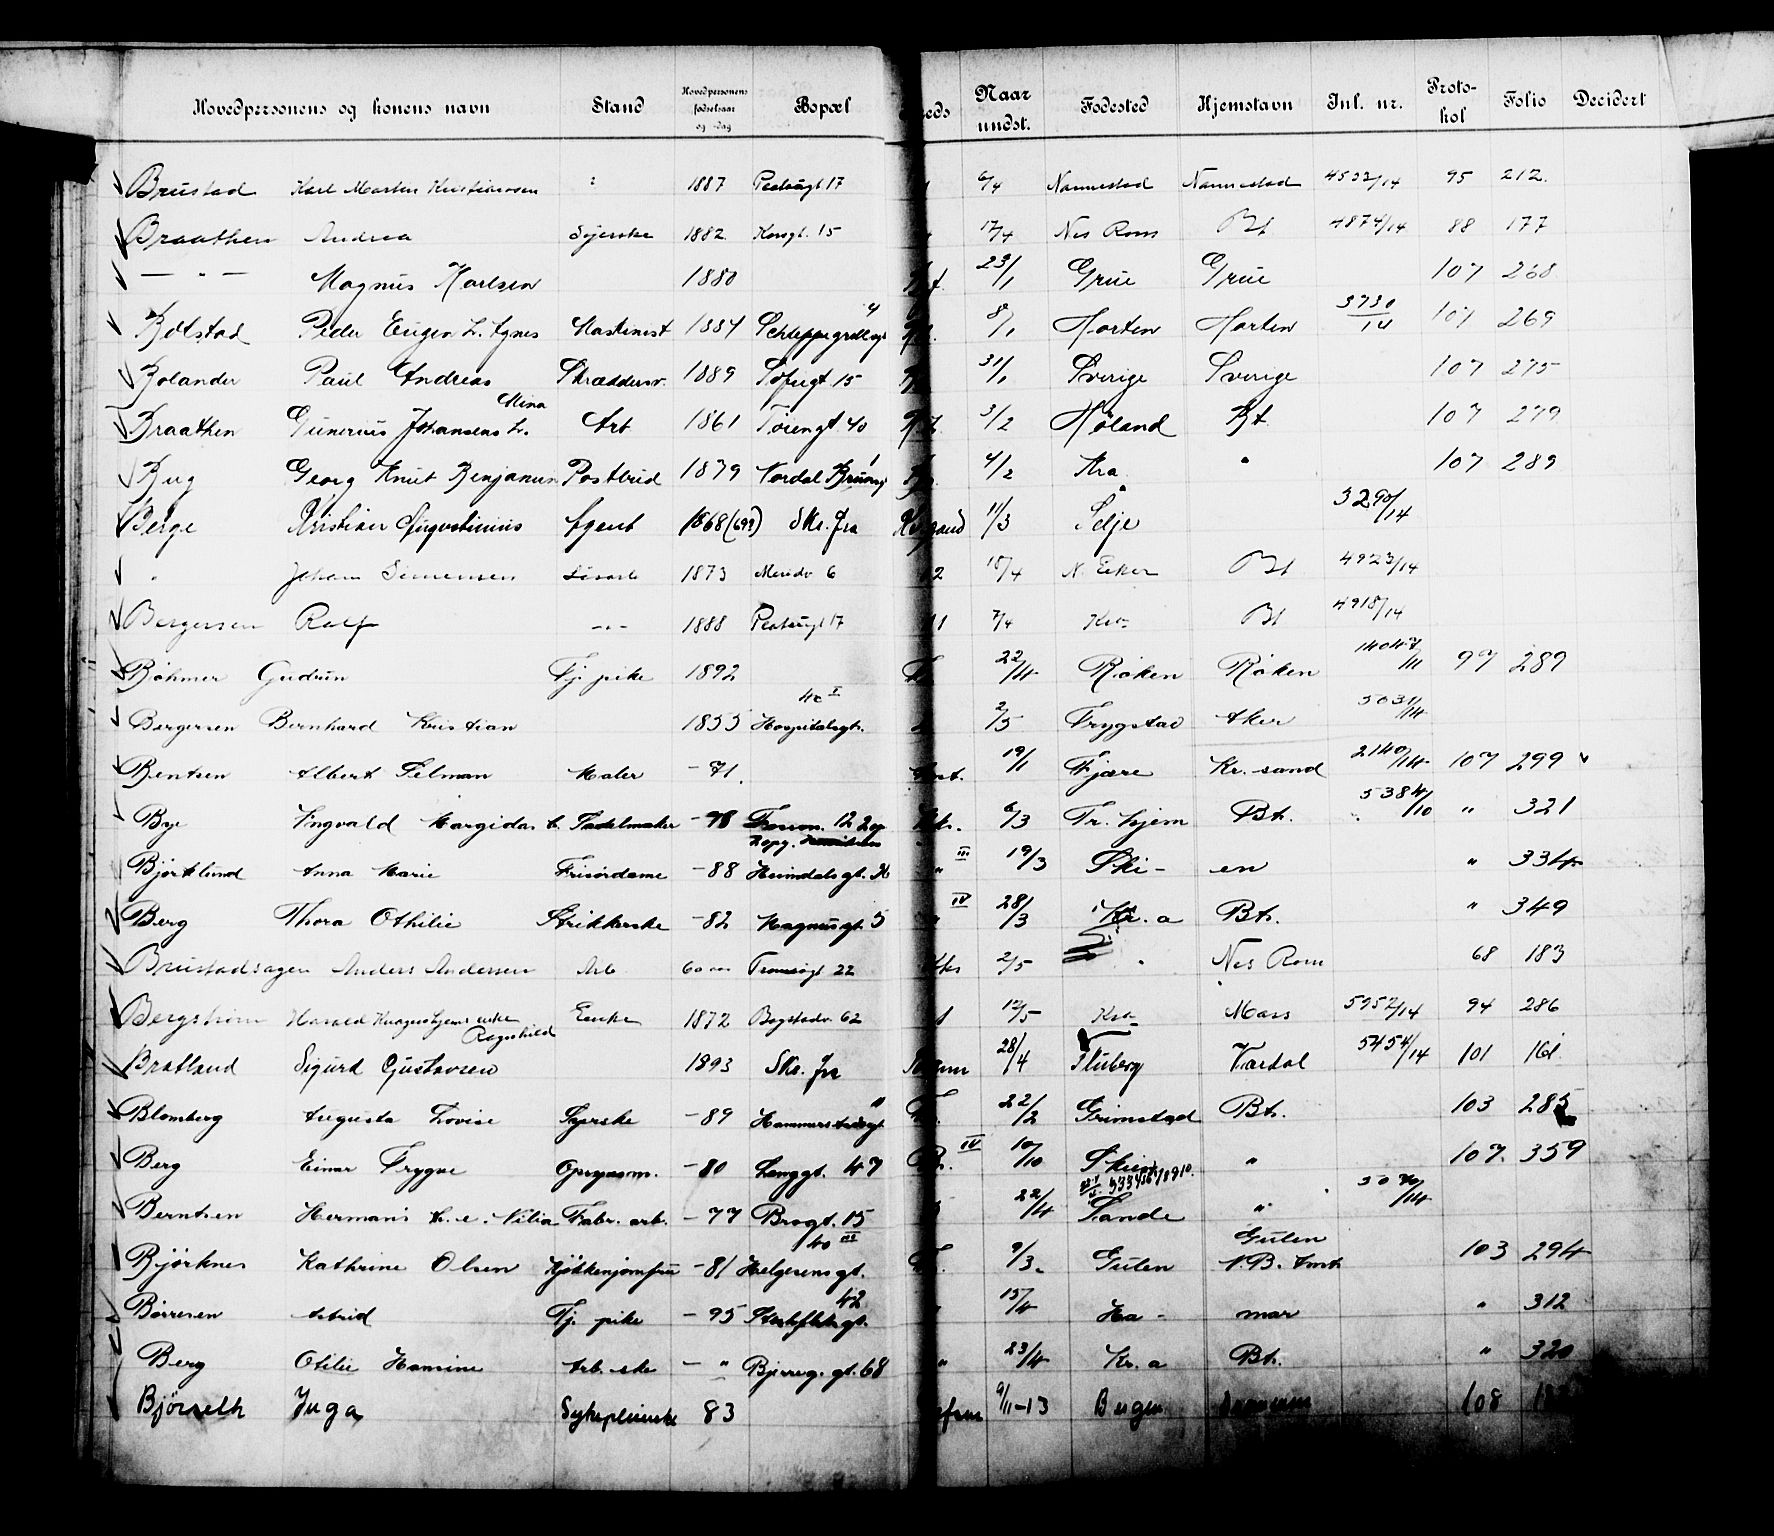 Hovedpersonens og konens navn Stand Hovedpersonens fødselsaar og -dag Bopæl Naar undst. Fødested Hjemstavn Inl. nr. Protokol Folio Decidert
Brustad Karl Martin Kristiansen 1887 17 6/4 Nannestad Nannestad 4532/14 95 212.
Braathen Andrea Syerske 1882 Korsgt. 15 17/4 Nes Rom Bt 4874/14 88 177
— " — Magnus Karlsen 1880 23/1 Grue Grue 107 268
Peder Eugen h. Agnes Maskinist 1884 Schleppegrellsgt 8/1 Horten Horten 3730/14 107 269
Bolander Paul Andreas Skræddersv. 1889 Sofiegt. 15 31/1 Sverige Sverige 107 275
Mina
Braathen Gunerius Johansens h. Arb 1861 Tøiengt 40 3/2 Høland Bt. 107 279
Bug Georg Knut Benjamin Postbud 1879 Nordal Brunsgt 4/2 Kra " 107 289
Berge Kristian Augustinius Agent 1868 (699) Skr. fra 11/3 Selje 3290/14
" Johan Simensen Løsarb 1873 6 2 18/4 N. Eker Bt 4923/14
Bergersen Rolf -"- 1888 17 11 7/4 Kra Bt 4918/14
Bøhmer Gudrun Tj. pike 1892 22/4 Røken Røken 14047/11 97 289
40 I
Bergersen Bernhard Kristian 1855 Hospitalsgt. 2/5 Trygstad Aker 5031/14
Bentsen Albert Selman Maler - 71. 19/1 Fjære Kr. sand 2140/14 107 299
Bye Ingvald Margido h. Sadelmaker - 78 12 2 op 6/3 Tr. hjem Bt. 5384/10 " 321
Bjørklund Anna Marie Frisørdame - 88 Heimdalsgt. " III 19/3 Ski - en " 334
Berg Thora Othilie Strikkerske - 82 Magnusgt. 5 IV 28/3 Kr. a Bt. " 349
Brustadsagen Anders Andersen Arb 60 aar Tromsøgt 22 2/5 " Nes Rom 68 183
Bergstrøm Harald enke Enke 1872 Bogstadv 62 12/5 Kra Moss 5952/14 94 286
Ragnhild
Bratland Sigurd Gustavsen 1893 Skr. fra 28/4 Stuberg Vardal 5454/14 101 161.
Blomberg Augusta Lovise Syerske - 89 22/2 Grimstad Bt. 103 285
Berg Einar Trygve Opvasm. - 80 Langgt. 47 IV 10/10 Skien " 107. 359
Berntsen Herman's h. e. Nilia Fabr. arb. - 77 Brogt. 15 22/4 Sande "
40 III Gulen
Bjørknes Kathrine Olsen Kjøkkenjomfru - 81 Helgesensgt. 9/3. Gulen N. B. Amt 103 294
42
Børresen Astrid Tj. pike - 95 15/4 Ha - mar " 312
Berg Otilie Hansine Arb. ske - " Bjerreg. gt. 68 " 23/4 Kr. a Bt. " 320
Inga Sykepleierske 83 9/11-13 Bergen 108